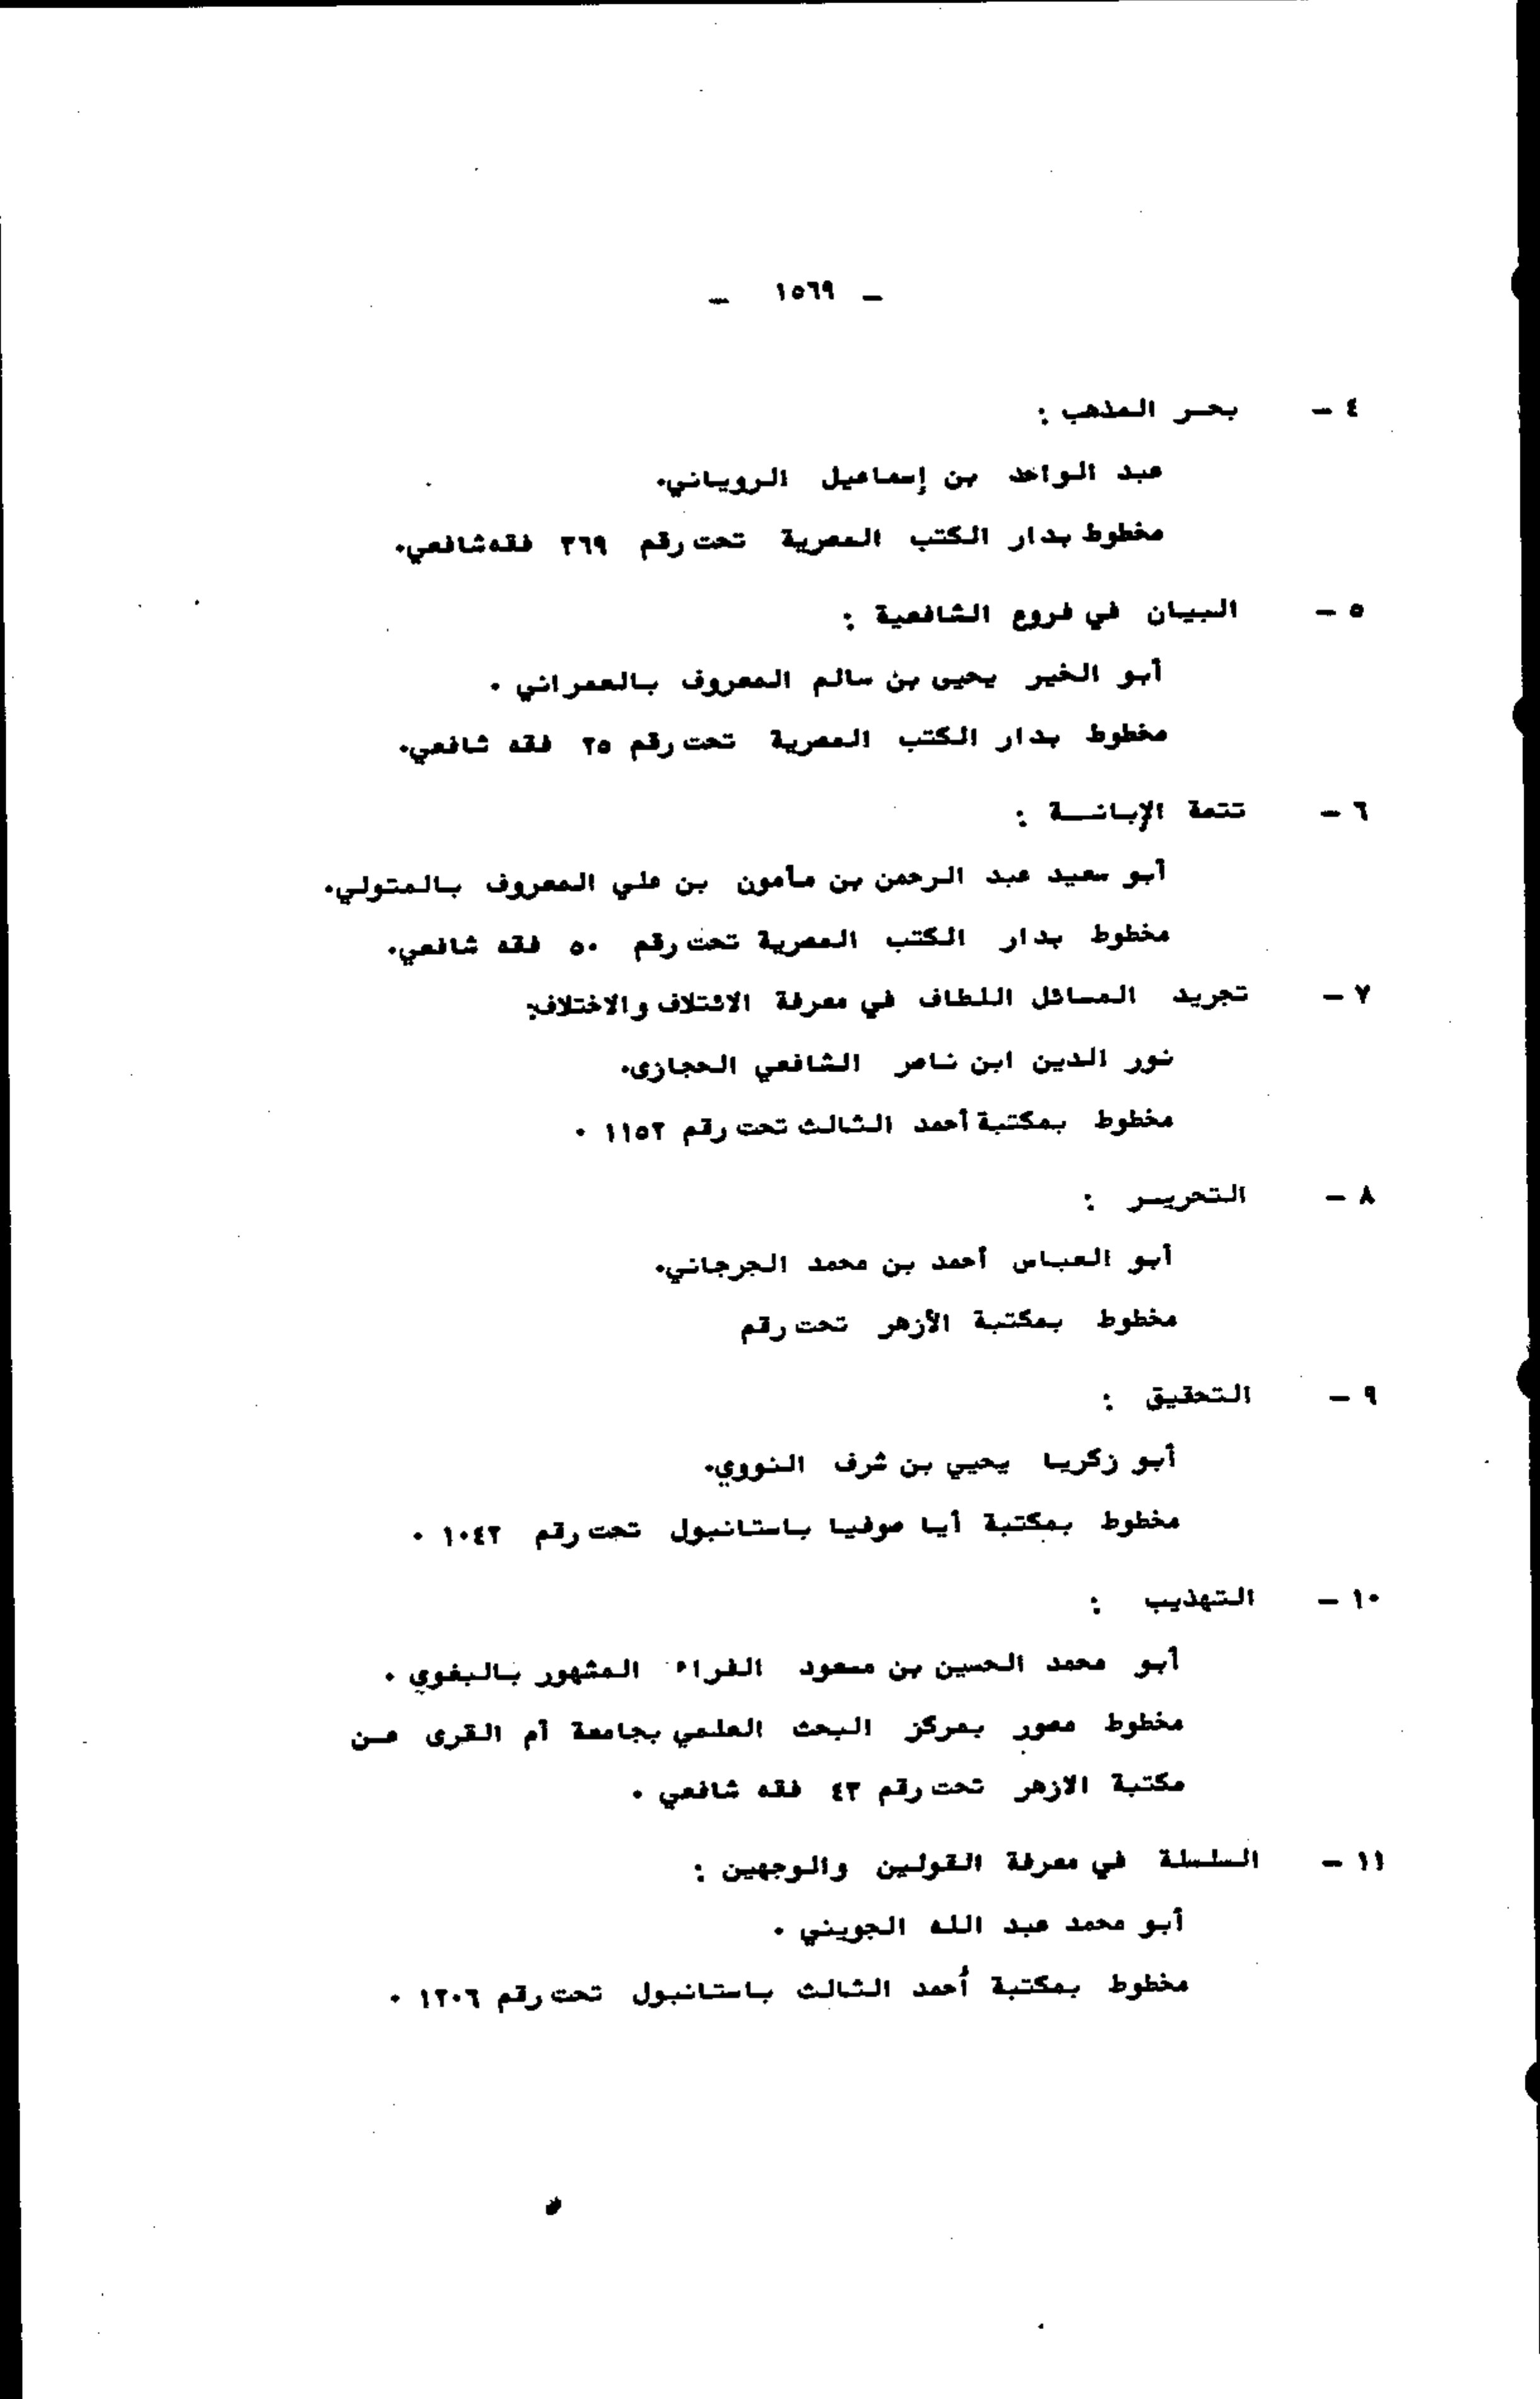 ـ ١٥٦٩ ـ
٤ ـ بحـر المذهب :
عبد الواحد بن إسماعيل الروياني.
مخطوط بدار الكتب المصرية تحت رقم ٣٦٩ فقه شافعي.
٥ ـ البيان في فروع الشافعية :
أبو الخير يحيى بن سالم المعروف بالعمراني .
مخطوط بدار الكتب المصرية تحت رقم ٢٥ فقه شافعي.
٦ ـ تتمة الإبانـــة :
أبو سعيد عبد الرحمن بن مأمون بن علي المعروف بالمتولي.
مخطوط بدار الكتب المصرية تحت رقم ٥٠ فقه شافعي.
٧ ـ تجريد المسائل اللطاف في معرفة الائتلاف والاختلاف:
نور الدين ابن ناصر الشافعي الحجازى.
مخطوط بمكتبة أحمد الثالث تحت رقم ١١٥٢ .
٨ ـ التحريـر :
أبو العباس أحمد بن محمد الجرجاني.
مخطوط بمكتبة الأزهر تحت رقم
٩ ـ التحقيق :
أبو زكريا يحيي بن شرف النووي.
مخطوط بمكتبة أيا صوفيا باستانبول تحت رقم ١٠٤٢ .
١٠ ـ التهذيب :
أبو محمد الحسين بن مسعود الفراء المشهور بالبغوي .
مخطوط مصور بمركز البحث العلمي بجامعة أم القرى عـن
مكتبة الازهر تحت رقم ٤٣ فقه شافعي .
١١ ـ السلسلة في معرفة القولين والوجهين :
أبو محمد عبد الله الجويني .
مخطوط بمكتبة أحمد الثالث باستانبول تحت رقم ١٢٠٦ .